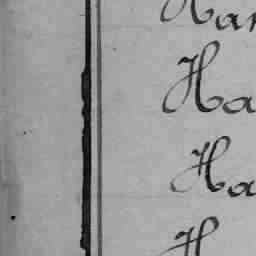 Har
Ha
Ha
H